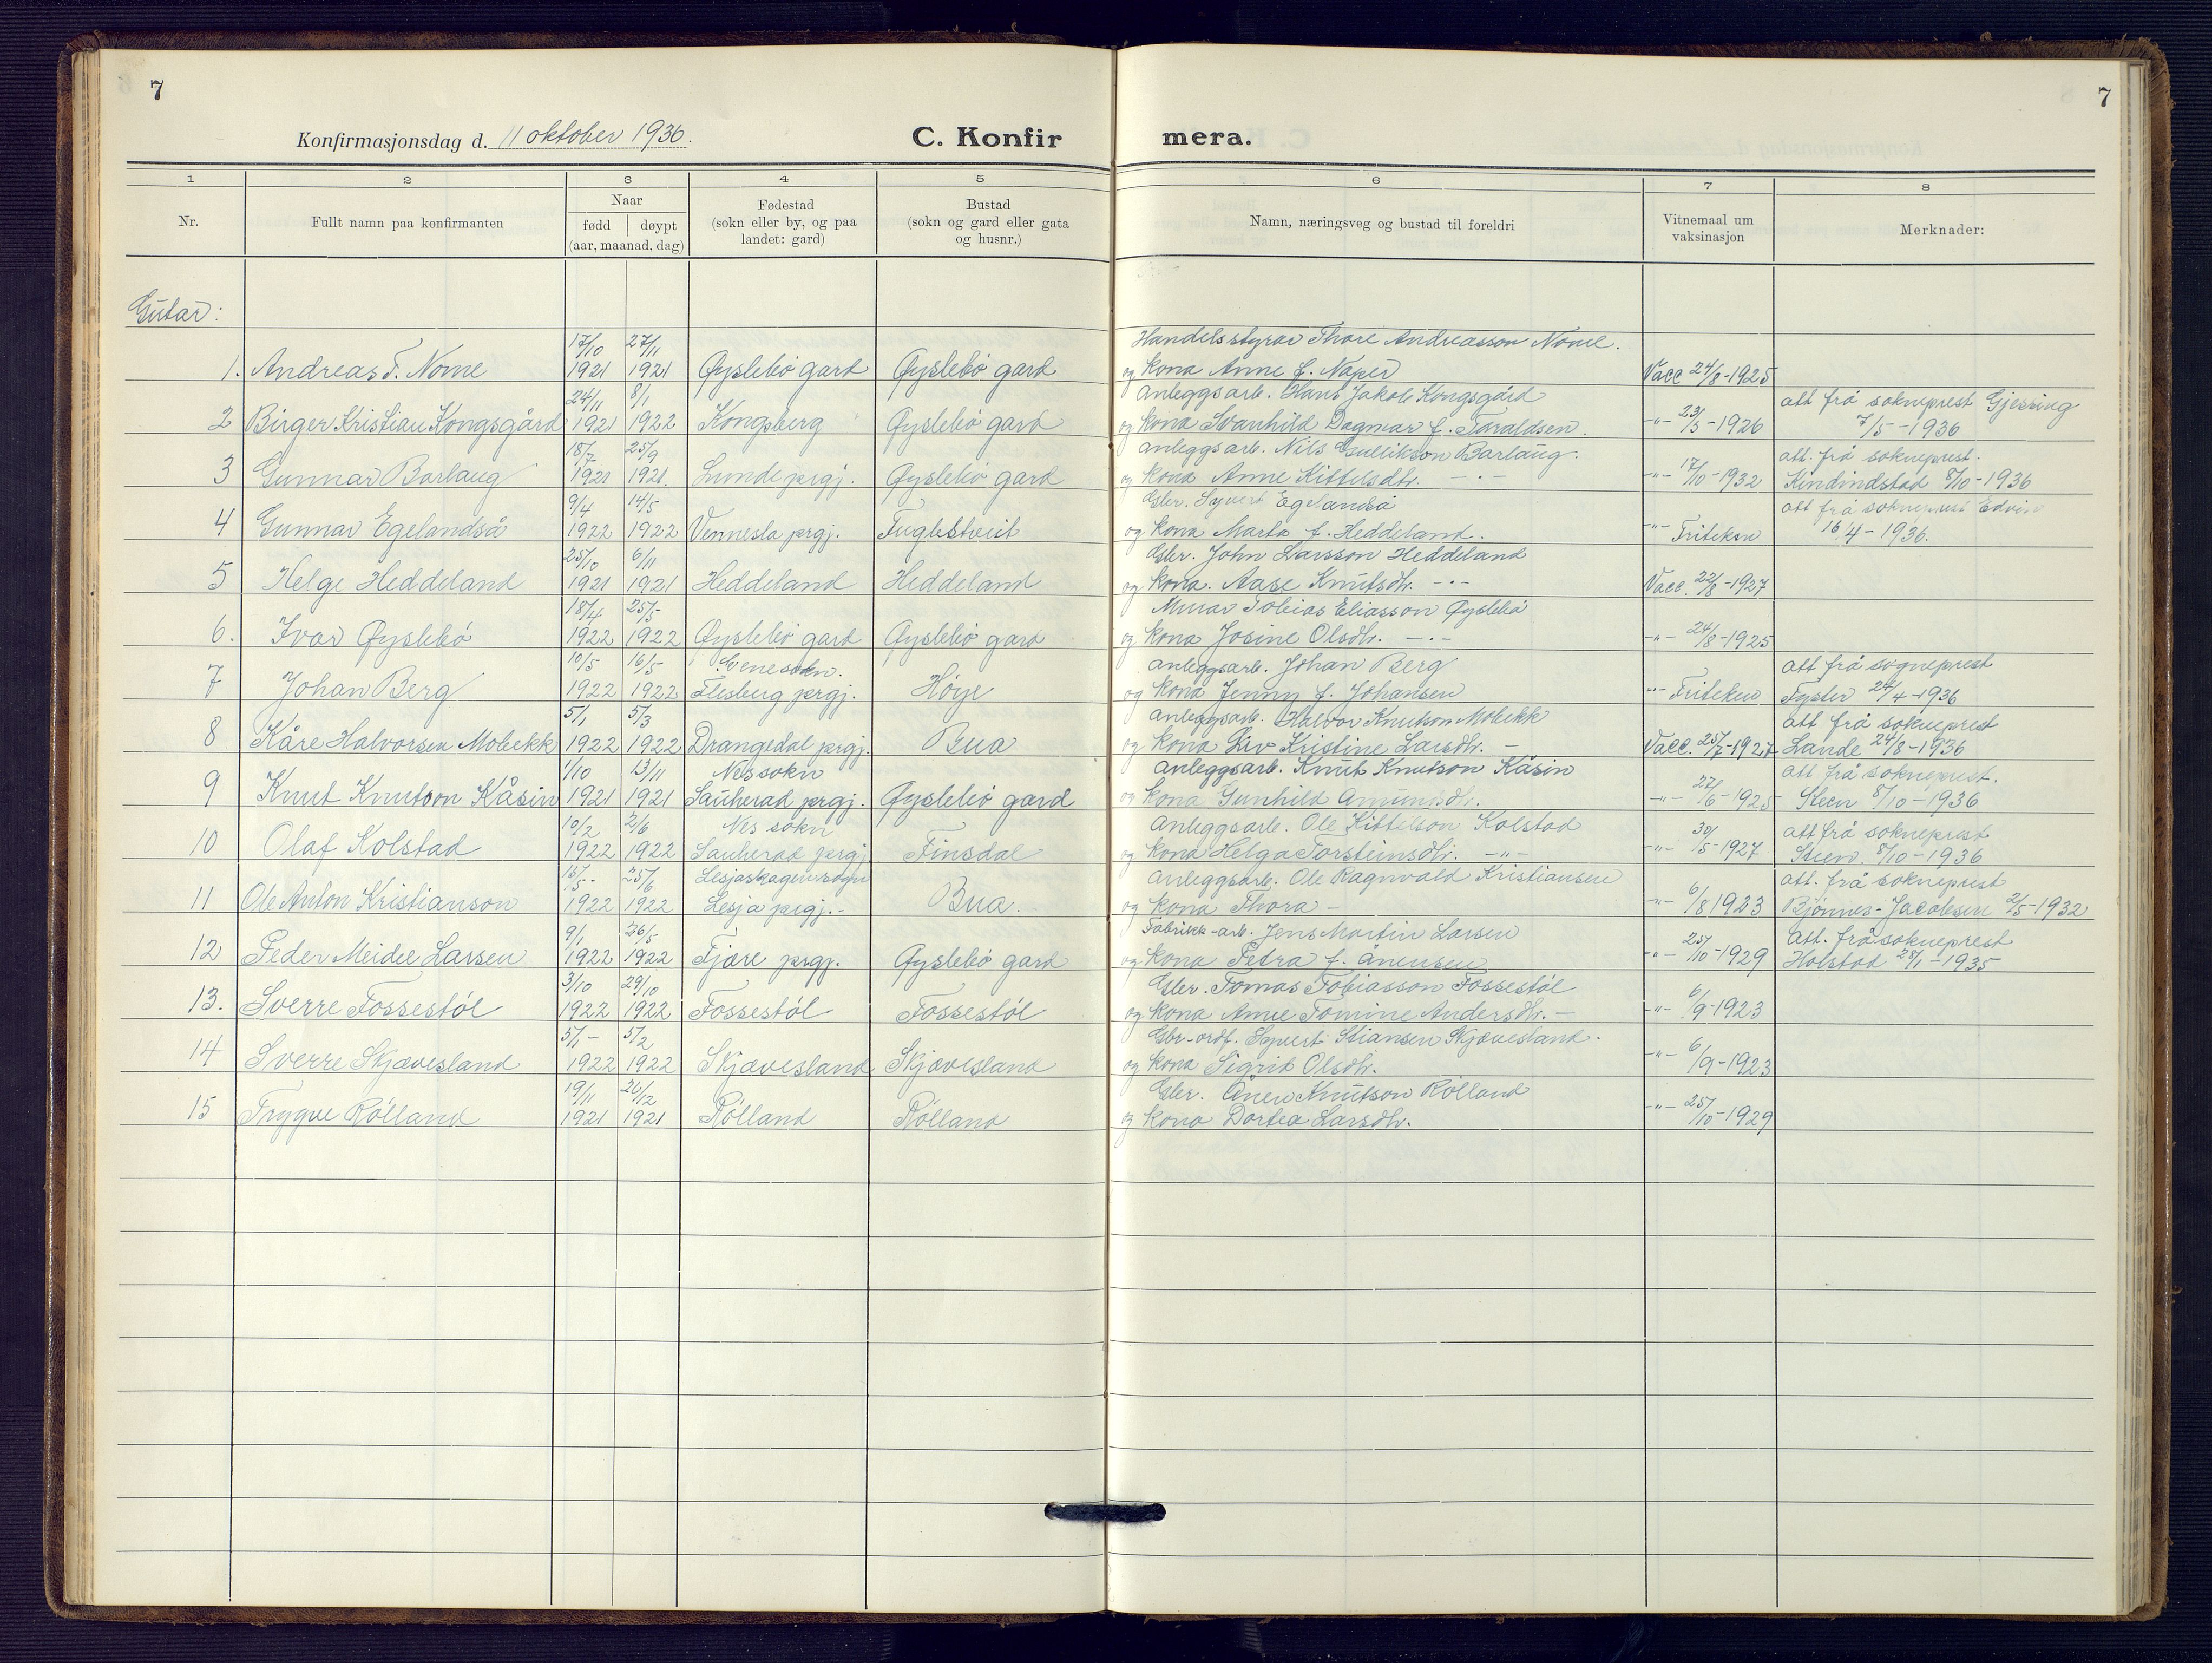 7
7
Konfirmasjonsdag d. 11 oktober 1936.
C. Konfirmera.
1 2 3 4 5 6 7 8
Nr. Fullt namn paa konfirmanten Naar fødd døypt (aar, maanad, dag) Fødestad (sokn eller by, og paa landet: gard) Bustad (sokn og gard eller gata og husnr.) Namn, næringsveg og bustad til foreldri Vitnemaal um vaksinasjon Merknader:
Gutar:
17/10 27/11 Handelsstyrar Thore Andreasson Nome.
1. Andreas T. Nome 1921 1921 Øyslebö gard Øyslebö gard og kona Anne f. Naper Vacc 24/8-1925
24/11 8/1 Anleggsarb. Hans Jakob Kongsgård att frå sokneprest Gjessing
2 Birger Kristian Kongsgård 1921 1922 Kongsberg Øyslebö gard og kona Svanhild Dagmar f. Taraldsen. -"- 23/3-1926 7/5-1936
18/7 25/9 Anleggsarb. Nils Gullikson Barlaug. att. frå sokneprest.
3 Gunnar Barlaug 1921 1921. Lunde prgj. Øyslebö gard og kona Anne Kittelsdtr. -"- -"- 17/10-1932 Kindindstad 8/10-1936
9/4 14/5 Gbr. Syvert Egelandså att frå sokneprest Edvin
4 Gunnar Egelandså 1922 1922 Vennesla prgj. Fuglestveit og kona Marta f. Heddeland. -"- Friteken 16/4-1936.
25/10 6/11 Gbr. John Larsson Heddeland
5 Helge Heddeland 1921 1921 Heddeland Heddeland og kona. Aase Knutsdtr. -"- Vacc. 22/8-1927
18/4 25/5 Murar Tobias Eliasson Øyslebö
6. Ivar Øyslebö 1922 1922 Øyslebö gard Øyslebö gard og kona Josine Olsdtr. -"- -"- 24/8-1925
10/5 16/5 Svene sokn. Anleggsarb. Johan Berg att frå sogneprest
7 Johan Berg 1922 1922 Flesberg prgj. Höye og kona Jenny f. Johansen -"- Friteken Fyster 24/4-1936
5/1 5/3 Anleggsarb. Halvor Knutson Mobekk att frå sokneprest
8 Kåre Halvorsen Mobekk 1922 1922 Drangedal prgj. Bua og kona Liv Kristine Larsdtr. - Vacc. 25/7-1927 Lande 24/8-1936
1/10 13/11 Nes sokn Anleggsarb. Knut Knutson Kåsin att frå sokneprest.
9 Knut Knutson Kåsin 1921 1921 Sauherad prgj. Øyslebö gard og kona Gunhild Amundsdtr. -"- 27/6-1925 Steen 8/10-1936
10/2 2/6 Nes sokn Anleggsarb. Ole Kittelson Kolstad att frå sokneprest
10 Olaf Kolstad 1922 1922 Sauherad prgj Finsdal og kona Helga Torsteinsdtr. -"- -"- 30/5-1927 Steen. 8/10-1936
25/6 Lesjaskagen sogn Anleggsarb. Ole Ragnvald Kristiansen att. frå sokneprest
11 Ole Anton Kristianson 1922 1922 Lesja prgj.- Bua. og kona Thora - -"- 6/8 1923 Bjønnes-Jacobsen 2/5-1932
9/1 26/5 Fabrikk-arb. Jens Martin Larsen Att. frå sokneprest
12 Peder Meidee Larsen 1922 1922 Fjære prgj. Øyslebö gard og kona Petra f. Ånensen -"- 25/10-1929 Holstad 28/1-1935
3/10 29/10 Gbr. Tomas Tobiasson Fossestöl
13. Sverre Fossestöl 1922 1922 Fossestöl Fossestöl og kona Anne Tomine Andersdtr. - -"- 6/9-1923
5/1- 5/2 Gbr-ordf. Syvert Stiansen Skjævesland.
14 Sverre Skjævesland 1922 1922 Skjævesland Skjævesland og kona Sigrid Olsdtr. -"- 6/9-1923
19/11 26/12 Gbr. Ånen Knutson Rölland
15 Trygve Rölland 1921 1921 Rölland Rölland og kona Dortea Larsdtr. -"- 25/10-1929